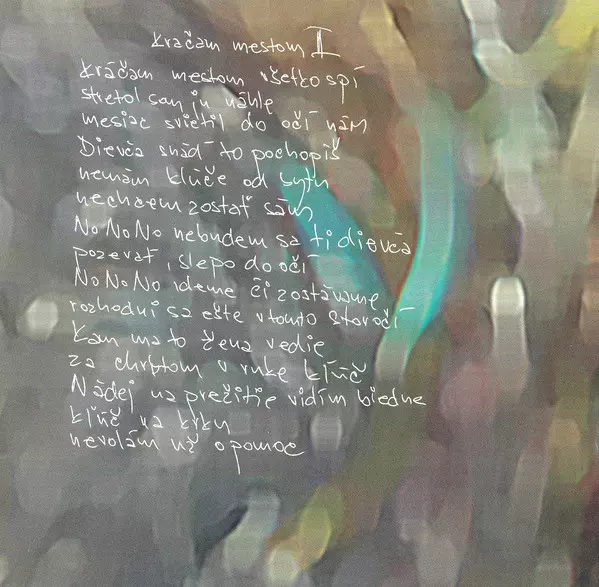 Kráčam mestom II
Kráčam mestom všetko spí
stretol som ju náhle
mesiac svietil do očí nám
Dievča snáď to pochopíš
nemám kľúče od bytu
nechcem zostať sám
No No No nebudem sa ti dievča
pozerať slepo do očí
No No No ideme či zostávame
rozhodni sa ešte v tomto storočí
Kam ma to žena vedie
za chrbtom v ruke kľúč
Nádej na prežitie vidím biedne
kľúč na krku
nevolám už o pomoc